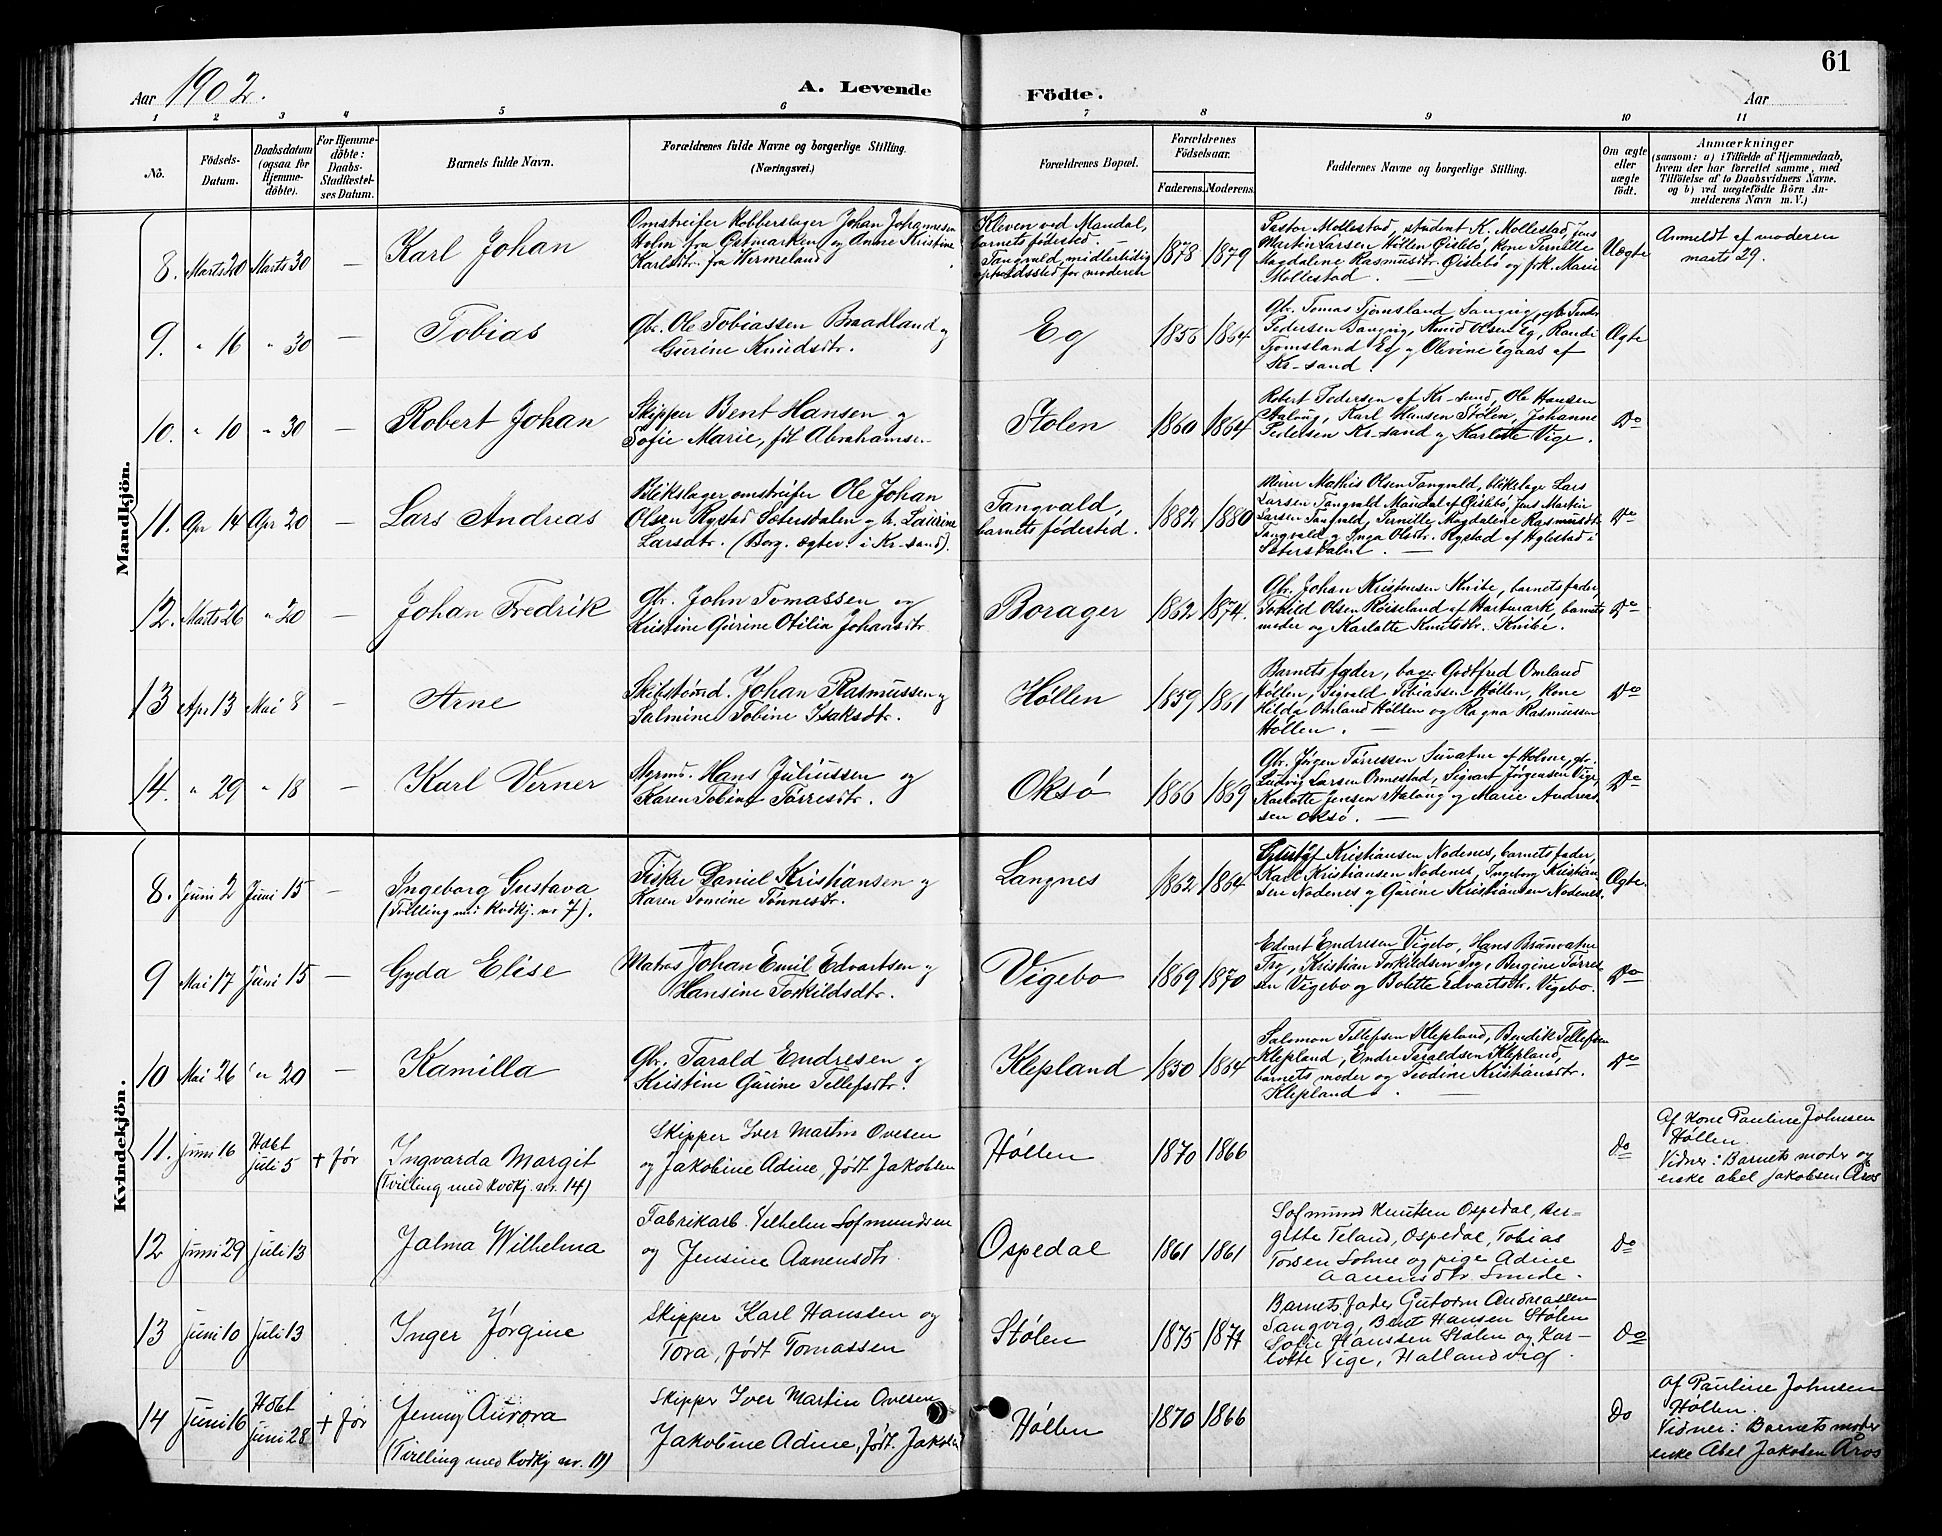 61
Aar 1902.
A. Levende Födte.
Aar
1 2 3 4 5 6 7 8 9 10 11
No.
Födsels-
Datum.
Daabsdatum
(ogsaa for
Hjemme-
döbte).
For Hjemme-
döbte:
Daabs-
Stadfæstel-
ses Datum.
Barnets fulde Navn.
Forældrenes fulde Navne og borgerlige Stilling.
(Næringsvei.)
Forældrenes Bopæl.
Forældrenes
Födselsaar.
Faderens. Moderens.
Faddernes Navne og borgerlige Stilling.
Om ægte
eller
uægte
födt.
Anmærkninger
(saasom: a) i Tilfælde af Hjemmedaab,
hvem der har forrettet samme, med
Tilföielse af to Daabsvidners Navne,
og b) ved uægtefödte Börn An-
melderens Navn m. V.)
Mandkjön.
8. Marts 20 Marts 30 —
Karl Johan
Omstreifer Kobberslager Johan Johannessen
Holm fra Østmarken og Anne Kristine
Karlsdtr. fra Wermeland
Kleven ved Mandal,
barnets fødested.
Tangvald, midlertidig
opholdssted for moderen
1878 1879
Pastor Mollestad, student K. Mollestad, Jens
Martin Larsen Høllen Øislebø, kone Pernille
Magdalene Rasmusdtr. Øislebø og frk. Marie
Mollestad. —
Uægte
Anmeldt af moderen
marts 29.
9. " 16 " 30 —
Tobias
Gbr. Ole Tobiassen Braadland og
Gurine Knudsdtr.
Eg
1856 1864
Gbr. Tomas Tjomsland Sangvig, gbr. Peder
Pedersen Sangvig, Knud Olsen Eg, Randi
Tjomsland Eg og Olevine Egaas af
Kr-sand.
Ægte
10. " 10 " 30 —
Robert Johan
Skipper Bent Hansen og
Sofie Marie,føt Abrahamsen
Stølen
1860 1864
Robert Pedersen af Kr-sand, Ole Hansen
Aaløug, Karl Hansen Stølen, Johanne
Pedersen Kr-sand og Karlotte Vige.
Do
11. Apr 14 Apr 20 —
Lars Andreas
Blikslager omstreifer Ole Johan
Olsen Rystad Sætersdalen og h. Laurine
Larsdtr. (Borg. ægtev. i Kr-sand).
Tangvald,
barnets fødested.
1882 1880
Murer Mathis Olsen Tangvald, blikslager Lars
Larsen Tangvald Mandal af Øislebø, Jens Martin
Larsen Tangvald, Pernille Magdalene Rasmusdtr.
Tangvald og Inga Olsdtr. Rystad af Hylestad i
Sætersdalen. —
Do
12. Marts 26 " 20 —
Johan Fredrik
Gbr. John Tomassen og
Kristine Gurine Otilia Johansdtr
Borager
1862 1874.
Gbr. Johan Kristensen Knibe, barnets fader,
Torkild Olsen Røiseland af Hartmark, barnets
moder og Karlotte Knutsdtr. Knibe.
Do
13 Apr 13 Mai 8 —
Arne
Skibstømd. Johan Rasmussen og
Salmine Tobine Isaksdtr.
Høllen
1859 1861
Barnets fader, bager Godtfred Omland
Høllen, Sigvald Tobiassen Høllen, kone
Hilda Omland Høllen og Ragna Rasmussen
Høllen. —
Do
14. " 29 " 18 —
Karl Verner
Styrmd. Hans Juliussen og
Karen Tobine Tørresdtr.
Oksø
1866 1869
Gbr. Jørgen Tørressen af Holme, gbr.
Ludvig Larsen Omestad, Sigvart Jørgensen Vige,
Karlotte Jensen Aaløug og Marie Andreas-
sen Oksø. —
Do
Kvindekjön.
8. Juni 2 Juni 15 —
Ingeborg Gustava
(Tvilling med Kvdkj. nr 7).
Fisker Daniel Kristiansen og
Karen Tomine Tønnesdtr.
Langnes
1862 1864
Kristiansen Nodenes, barnets fader,
Karl Kristiansen Nodenes, Ingeborg Kristian-
sen Nodenes og Gurine Kristiansen Nodenes.
Ægte.
9 Mai 17 Juni 15 —
Gyda Elise
Matros Johan Emil Edvartsen og
Hansine Torkildsdtr.
Vigebo
1869 1870
Edvart Endresen Vigebo, Hans Brunvatne
Try, Kristian Torkildsen Try, Bergine Tørres-
sen Vigebo og Bolette Edvartsdtr. Vigebo.
Do
10 Mai 26 " 20 —
Kamilla
Gbr. Tarald Endresen og
Kristine Gurine Tellefsdtr.
Klepland
1850 1864
Salomon Tellefsen Klepland, Bendik Tellefsen
Klepland, Endre Taraldsen Klepland,
barnets moder og Teodine Kristiansdtr.
Klepland. —
Do
11. Juni 16 Hdbt Juli 5 + før
Ingvarda Margit
(Tvilling med Kvdkj. nr. 14)
Skipper Iver Martin Ovesen
og Jakobine Adine, født Jakobsen
Høllen
1870 1866
Do
Af Kone Pauline Johnsen
Høllen.
Vidner: Barnets moder og
enke Abel Jakobsen Åros
12 Juni 29 Juli 13
Jalma Wilhelma
Fabrikarb. Vilhelm Sofmundsen
og Jensine Aanensdtr.
Ospedal
1861 1861
Sofmund Knutsen Ospedal, Ber-
gitte Teland, Ospedal, Tobias
Torsen Lohne og pige Adine
Aanensdtr. Lunde.
Do
13 Juni 10 Juli 13
Inger Jørgine
Skipper Karl Hanssen og
Tora, født Tomassen
Stølen
1875 1871
Barnets fader Gutorm Andreassen
Sangvig, Bent Hansen Stølen
Sofie Hanssen Stølen og Kar-
lotte Vige, Hallandvig.
Do
14 Juni 16 Hdbt Juni 28 + før
Jenny Aurora
(Tvilling med Kvdkj nr. 11)
Skipper Iver Martin Ovesen
Jakobine Adine, født. Jakobs
Høllen
1870 1866
Do
Af Pauline Johnsen
Høllen.
Vidner: Barnets moder
enke Abel Jakobsen Åros